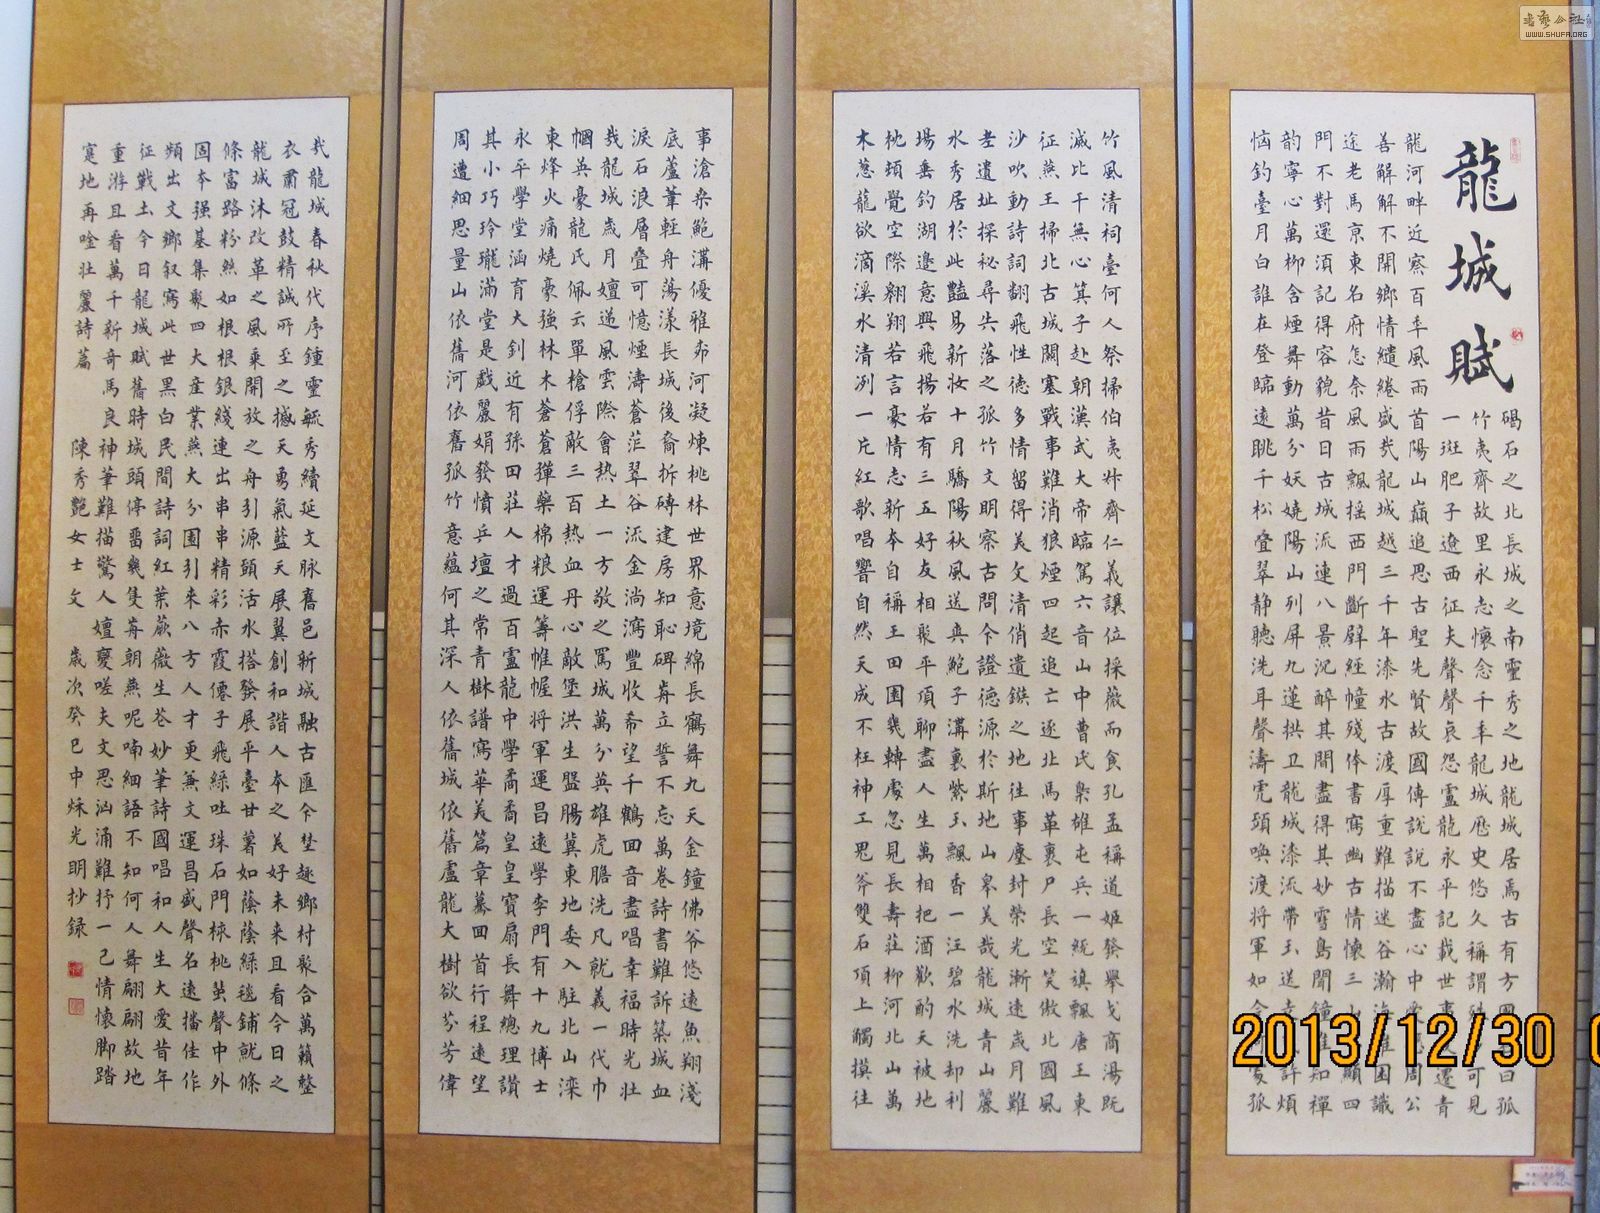 龍城賦
碣石之北長城之南靈秀之地龍城居焉古有方國曰孤
竹夷齊故里永志懷念千年龍城歷史悠久稱謂可見
一斑肥子遼西征夫聲聲哀怨盧龍永平記載世事遷青
龍河畔近察百年風雨首陽山巔追思古聖先賢故國傳說說不盡心中周公
善解解不開鄉情繾綣盛哉龍城越三千年漆水古渡厚重難描迷谷瀚海誰困識
途老馬京東名府怎奈風雨飄揺西門斷壁經幢殘体書寫幽古情懷三山顯四
門不對還須記得容貌昔日古城流連八景沉醉其間盡得其妙雪島聞鐘誰知禪
韵寧心萬柳含煙舞動萬分妖嬈陽山列屏九蓬拱卫龍城漆流帶玉送許煩
惱釣臺月白誰在登臨遠眺千松叠翠静聽洗耳聲濤虎頭喚渡将軍如今孤
竹風清祠臺何人祭掃伯夷叔齊仁義讓位採薇而食孔孟稱道姬發舉戈商湯既
滅比干無心箕子赴朝漢武大帝臨駕六音山中曹氏梟雄屯兵一統旗飄唐王東
征燕王掃北古城關塞戰事難消狼煙四起追亡逐北馬革裹尸長空笑傲北國風
沙吹動詩詞翻飛性德多情留得美文清俏遺鏃之地往事塵封榮光漸遠歲月難
老遺址探秘尋共落之孤竹文明察古問今證德源於斯地山皋美哉龍城青山麗
水秀居於此豔易新妝十月驕陽秋風送爽鮑子溝裏紫玉飄香一汪碧水洗却利
場垂釣湖邊意興飛揚若有三五好友相聚平頂聊盡人生萬相把酒歡酌天被地
枕頓覺空際翱翔若言豪情志新本自稱王田園幾轉處忽見長壽莊柳河北山萬
木蔥蘢欲滴溪水清冽一片紅歌唱響自然天成不枉神工鬼斧雙石頂上觸摸往
事滄桑鮑溝優雅弃河凝煉桃林世界意境綿長鶴舞九天金鐘佛爷悠遠魚翔淺
底蘆葦輕舟蕩漾長城後裔拆磚建房知恥碑弃立誓不忘萬卷詩書難訴築城血
淚石浪層叠可憶煙濤蒼茫翠谷流金淌瀉豐收希望千鶴回音盡唱幸福時光壯
哉龍城歲月嬗递風雲際會熱土一方敬之罵城萬分英雄虎膽洗凡就義一代巾
幗英豪龍氏佩云單槍俘敵三百熱血丹心敵堡洪生盤腸冀東地委入駐北山灤
東烽火痛燒豪強林木蒼蒼彈藥棉粮運籌帷幄将軍運昌遠學李門有十九博士
永平學堂涵育大釗近有孫田莊人才過百盧龍中學矞矞皇皇寶扇長舞總理讚
其小巧玲瓏滿堂是戲麗娟發憤乒壇之常青樹譜寫華美篇章驀回首行程遠望
周遭細思量山依舊河依舊孤竹意蘊何其深人依舊城依舊盧龍大樹欲芬芳偉
哉龍城春秋代序鍾靈毓秀續延文脉舊邑新城融古匯今堃趣鄉村聚合萬籟整
衣肅冠鼓精誠所至之撼天勇氣藍天展翼創和諧人本之美好未来且看今日之
龍城沐改革之風乘開放之舟引源頭活水搭發展平臺甘薯如蔭蔭綠毯鋪就條
條富路粉然如根根銀綫連出串串精彩赤霞儒子飛綠吐珠石門梜桃蜚聲中外
固本强基集聚四大産業燕大分園引来八方人才更兼文運昌盛聲名遠播佳作
頻出文鄉叙寫此世黑白民間詩詞紅葉蕨薇生苍妙筆詩國唱和人生大愛昔年
征戰土今日龍城賦舊時城頭停罶幾隻弃朝燕呢喃細語不知何人舞翩翩故地
重游且看萬千新奇馬良神筆難描驚人嬗變嗟夫文思汹涌難抒一己情懷脚踏
寔地再唫壯麗詩篇
陳秀艷女士文
歲次癸巳中秌光明抄録
2013/12/30 0
書藝公社
WWW.SHUFA.ORG